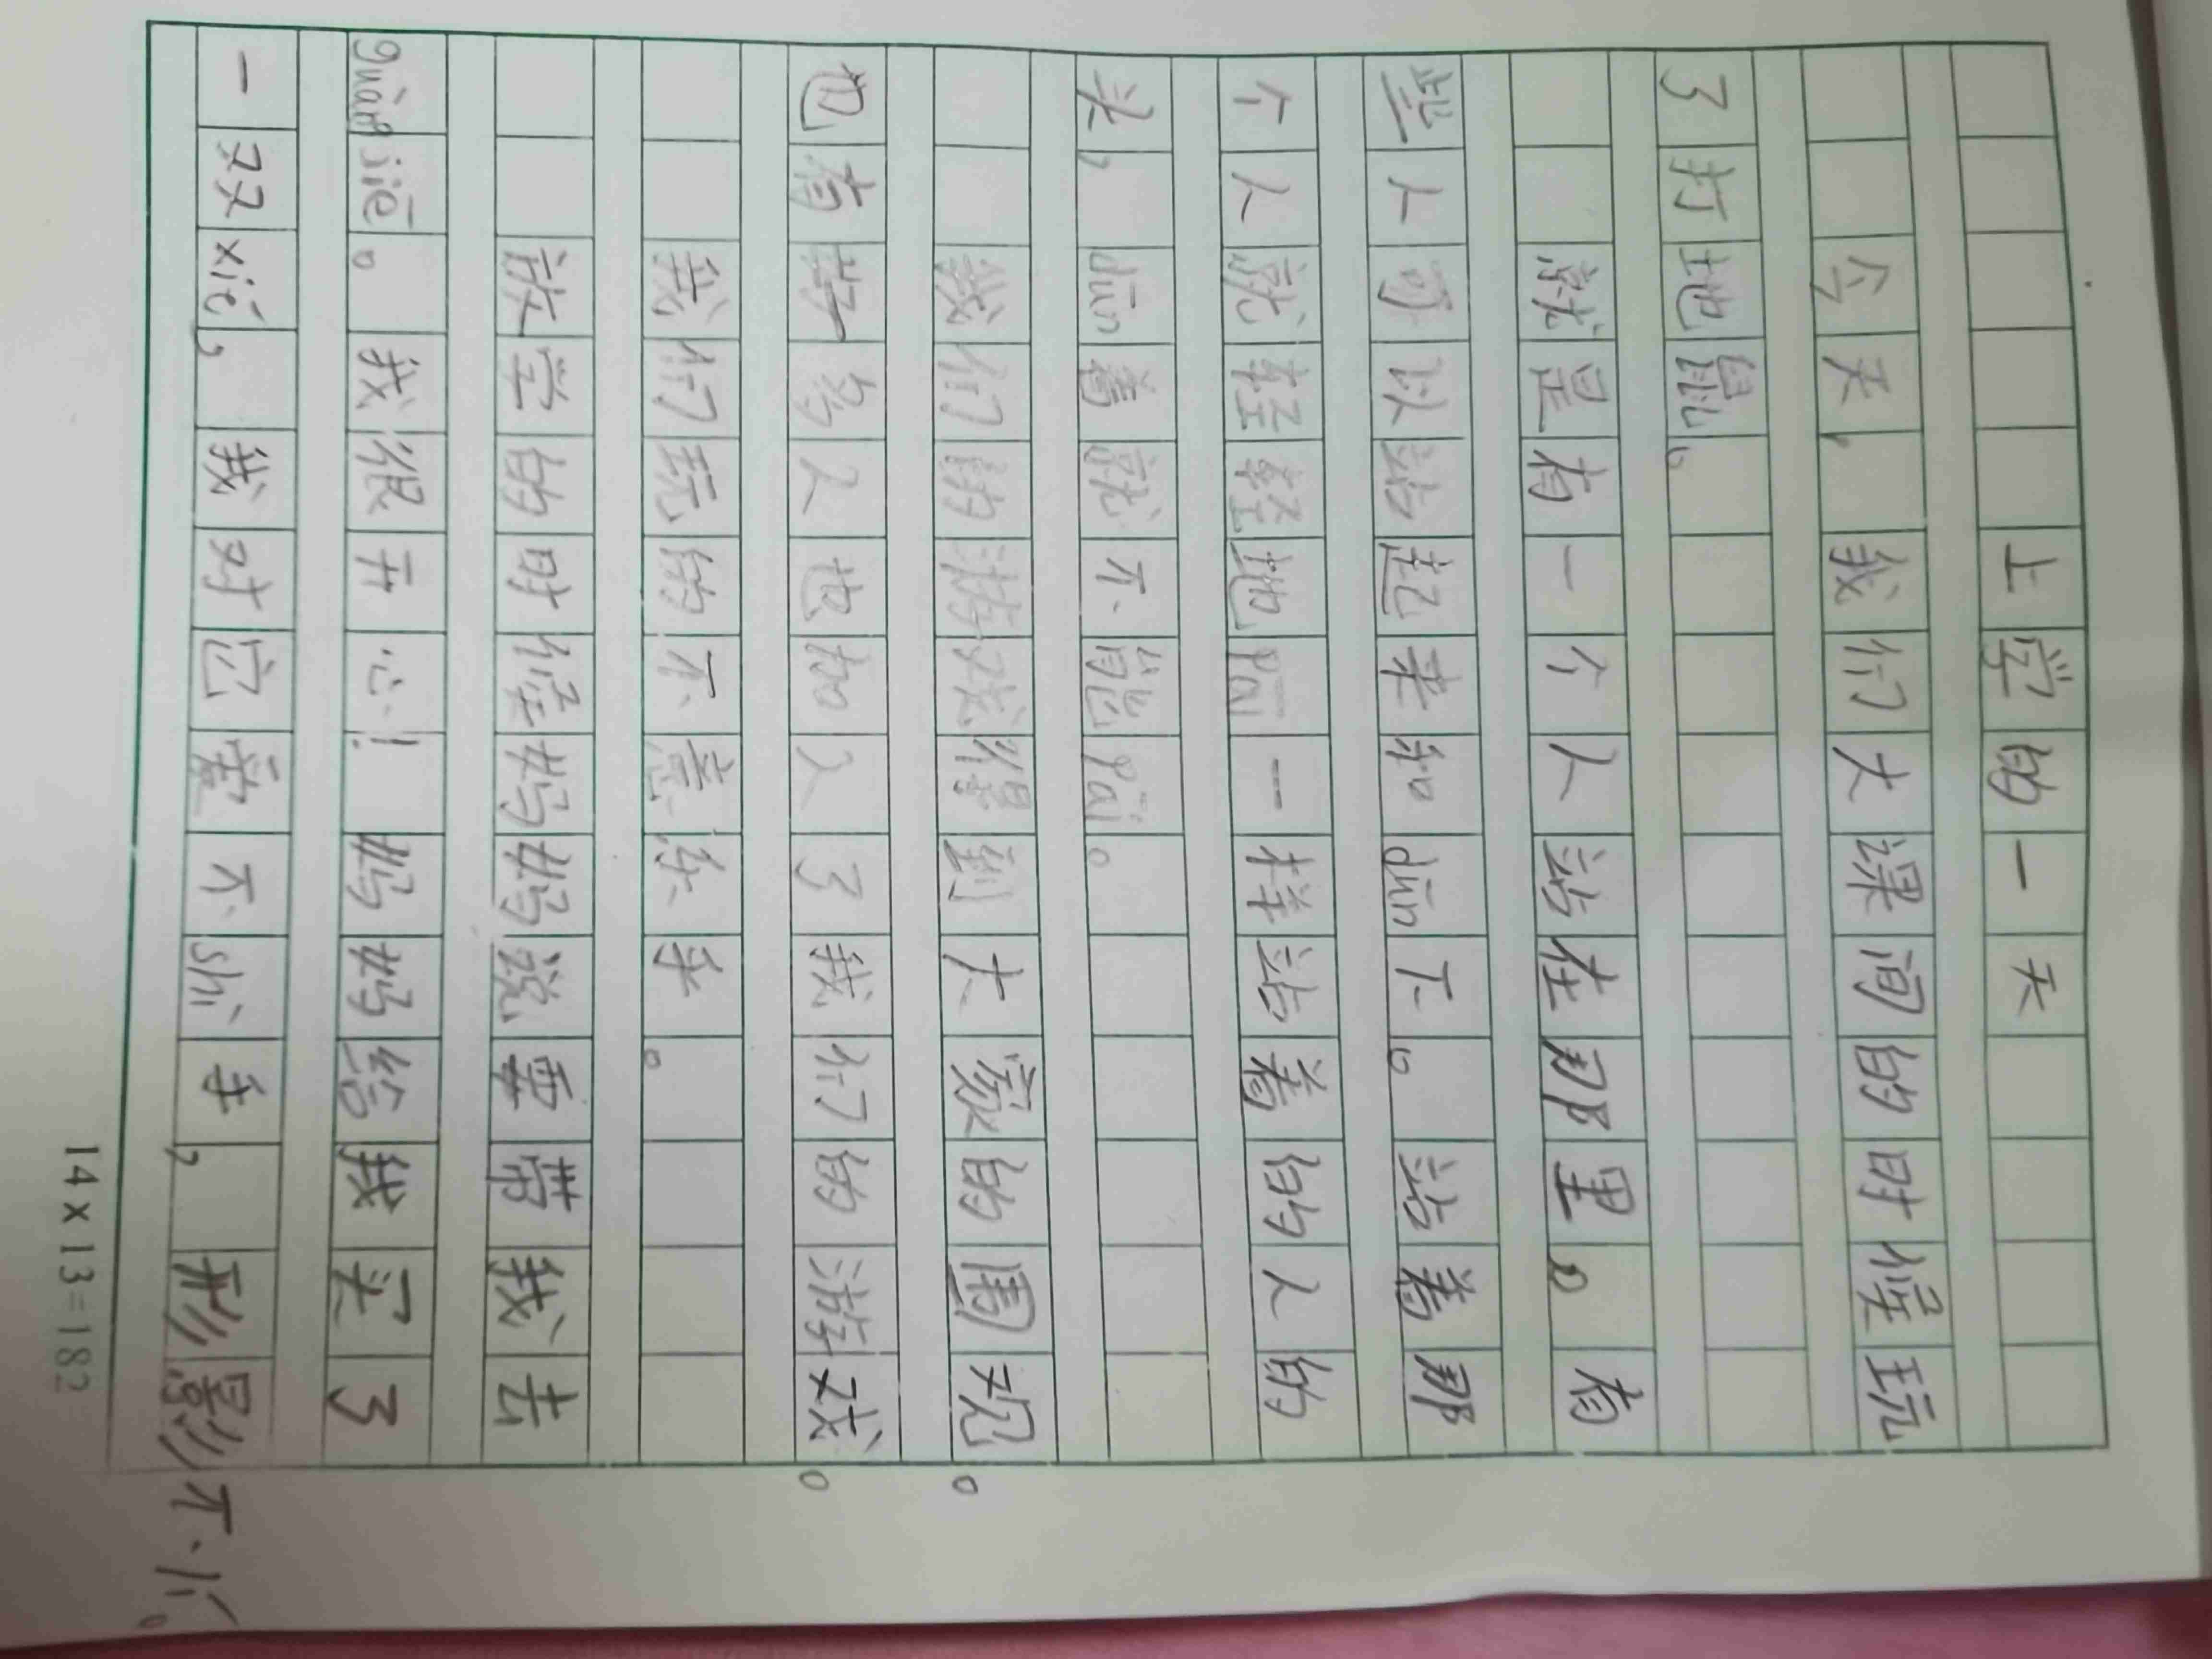 上学的一天
今天，我们大课间的时候玩
了打地鼠。
就是有一个人站在那里。有
些人可以站起来和dūn下。站着那
个人就轻轻地pāi一样站着的人的
头，dūn着就不能pāi。
我们的游戏得到大家的围观。
也有好多人也加入了我们的游戏。
我们玩的不意乐乎。
放学的时候妈妈说要带我去
guàngjiē。我很开心！妈妈给我买了
一双xié，我对它爱不shì手，形影不lí。
14×13=182